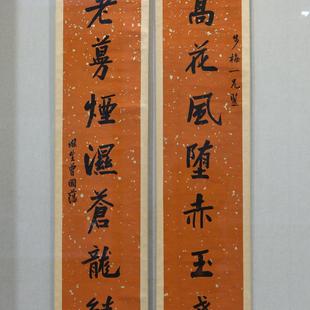 髙花風堕赤玉
梅一兄
老蔓煙濕蒼龍
滌生曾國藩